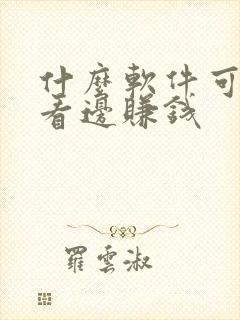 什麼軟件可
看邊賺錢
羅雲淑